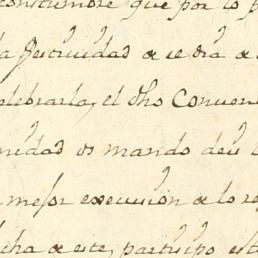 costumbre que por lo p
la festividad de se dra de
elebrarla, el dho Conven
nidad os mando deis
mejor execucion de lo re
cha de este, participo est